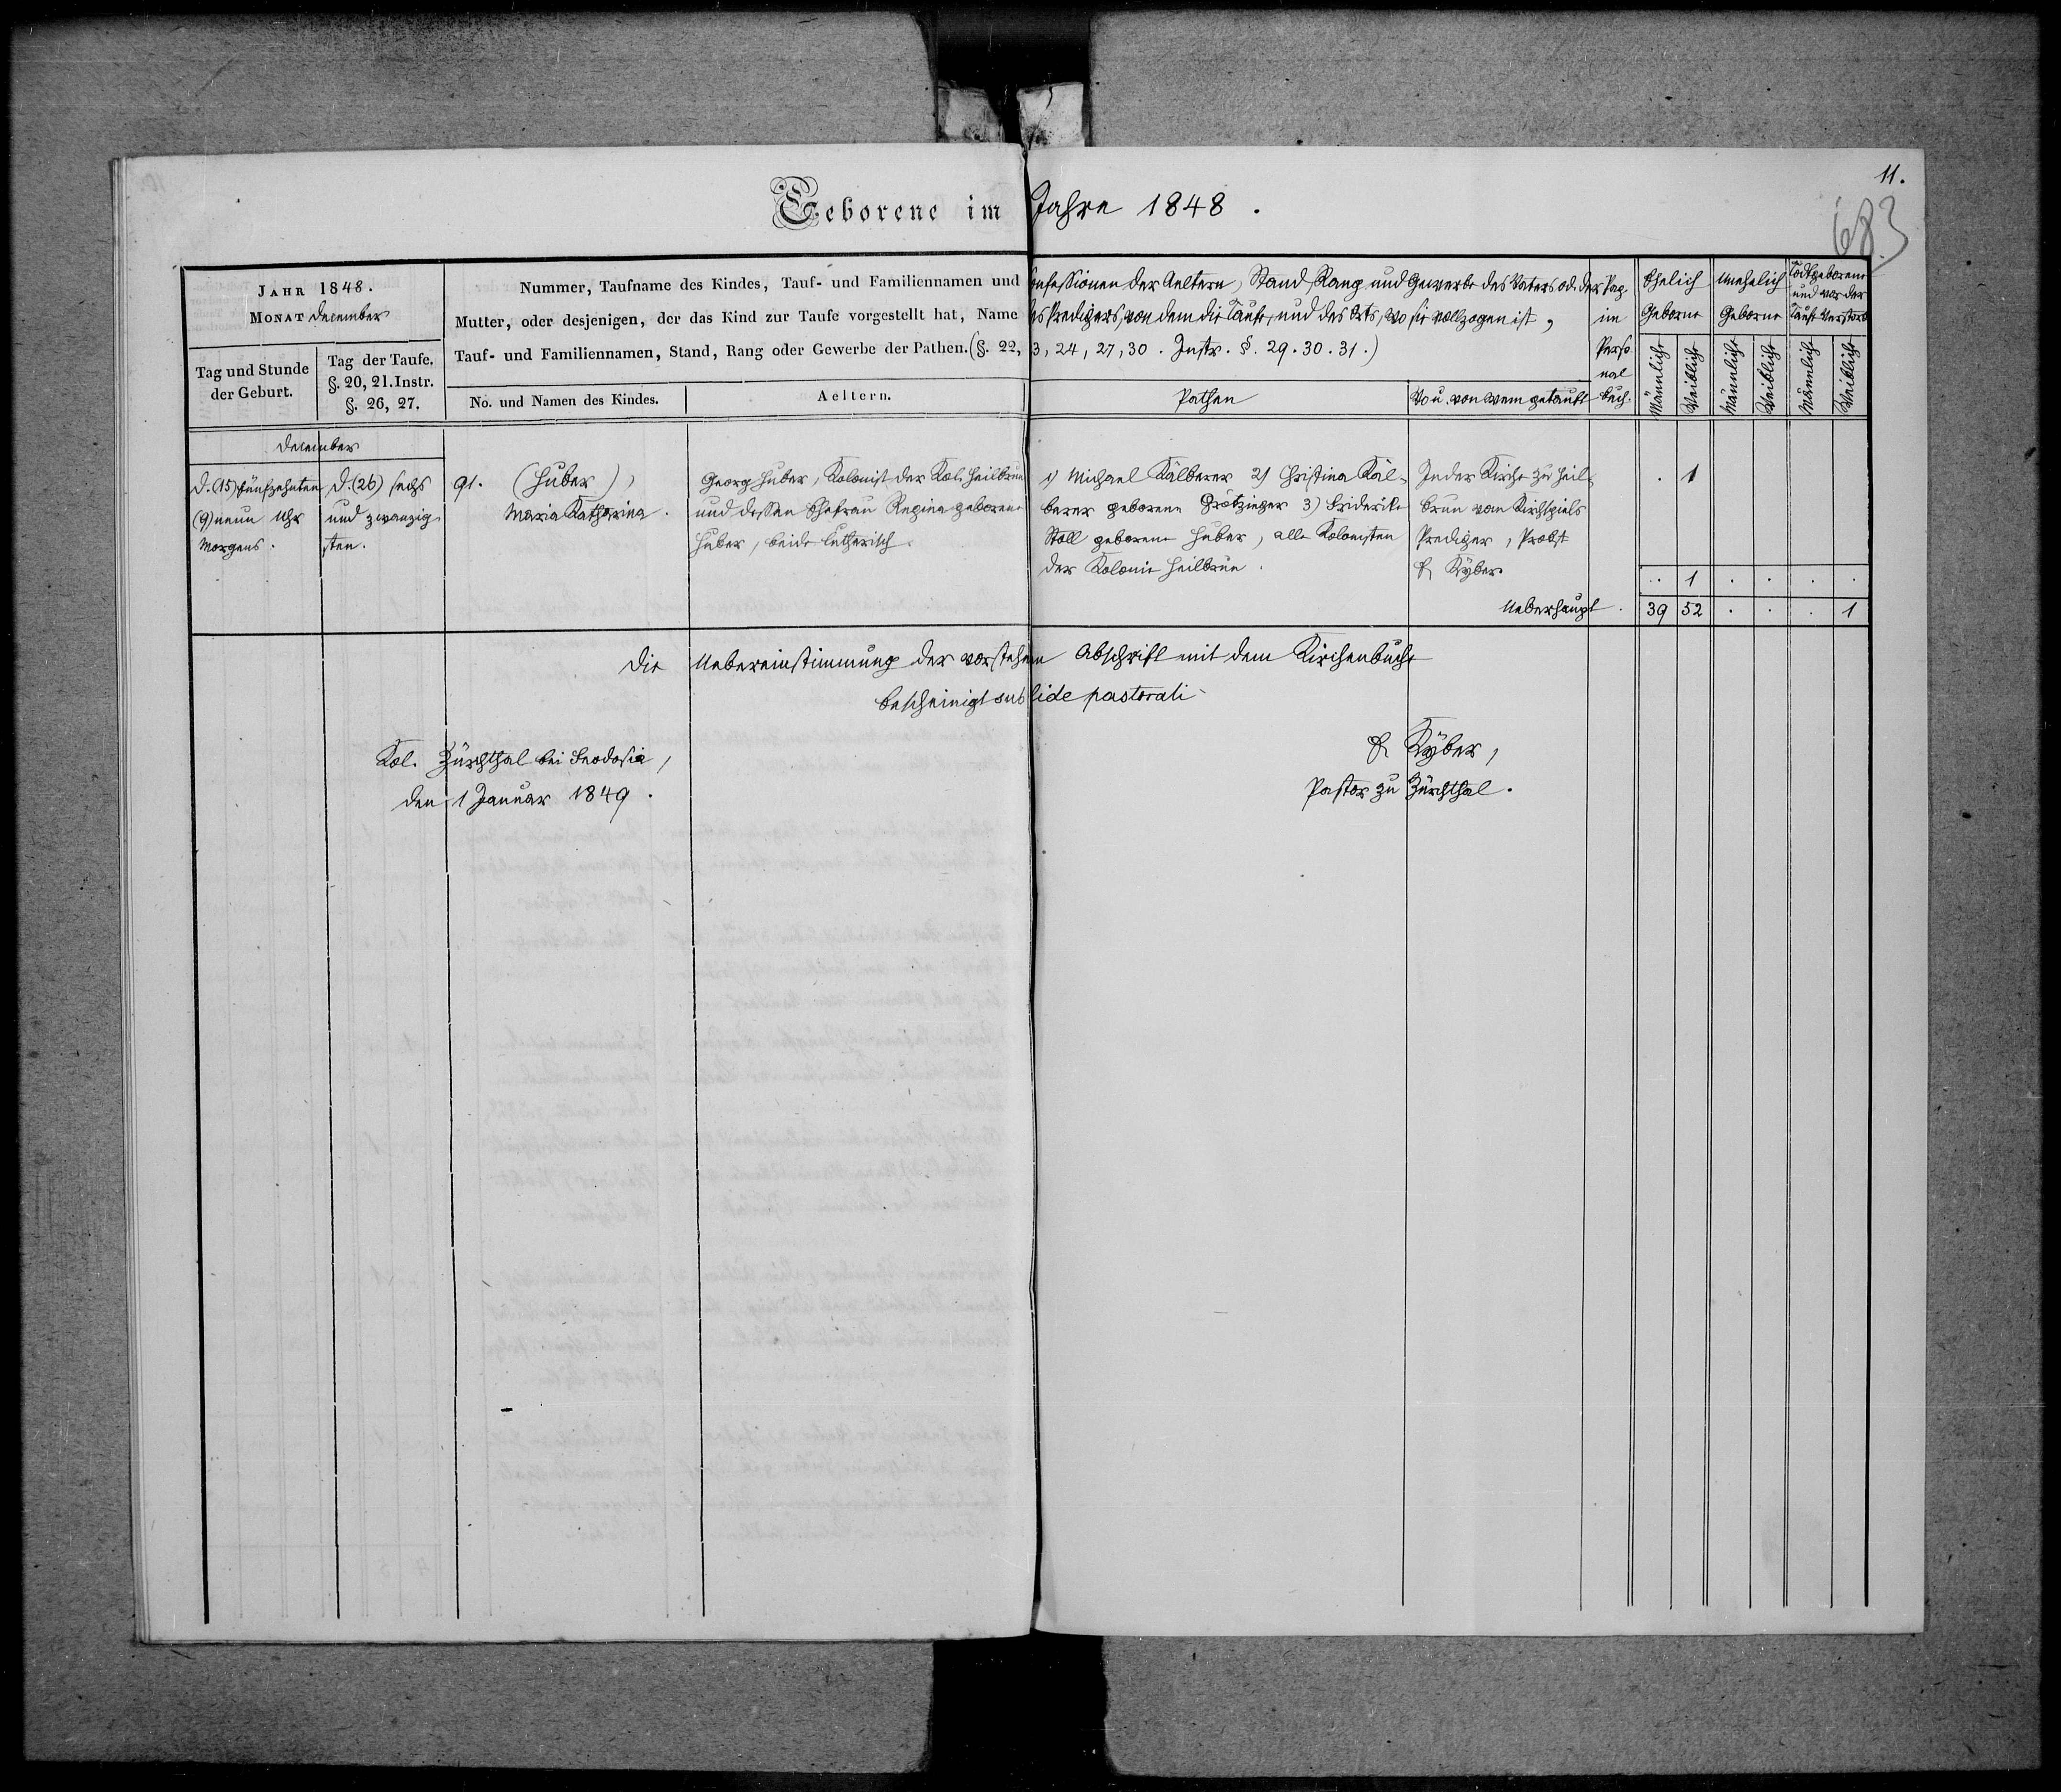 11.
683
Geborene im Jahre 1848.
JAHR 1848.
MONAT December
Nummer, Taufname des Kindes, Tauf- und Familiennamen und Confessionen der Aeltern, Stand, Rang und Gewerbe des Vaters od. der
Mutter, oder desjenigen, der das Kind zur Taufe vorgestellt hat, Name des Predigers, von dem die Taufe, und des Orts, wo sie vollzogen ist,
Tauf- und Familiennamen, Stand, Rang oder Gewerbe der Pathen. (§. 22, 23, 24, 27, 30. Instr. §. 29. 30. 31.)
Tag und Stunde der Geburt.
Tag der Taufe. §. 20, 21. Instr. §. 26, 27.
No. und Namen des Kindes.
Aeltern.
Pathen
Wo u. von wem getauft
Pag. im Perso nal buch.
Ehelich Geborne
Unehelich Geborne
Todtgeborene und vor der Taufe Verstorb
Männlich Weiblich Männlich Weiblich Männlich Weiblich
December
d. (15) fünfzehnten
(9) neun Uhr
Morgens.
d. (26) sechs
und zwanzig
sten.
91. (Huber),
Maria Katharina.
Georg Huber, Kolonist der Kol. Heilbrun
und dessen Ehefrau Regina geborene
Huber, beide lutherisch.
1) Michael Kälberer 2) Christina Käl-
berer geborene Grötzinger 3) Friderike
Stoll geborene Huber, alle Kolonisten
der Kolonie Heilbrun.
In der Kirche zu Heil-
brun vom Kirchspiels
Prediger, Probst
F. Kyber
. 1
. . 1 . . . .
Ueberhaupt. 39 52 . . . 1
Die Uebereinstimmung der vorstehen Abschrift mit dem Kirchenbuche
bescheinigt sub fide pastorali
Kol. Zürchthal bei Feodosia,
den 1 Januar 1849.
F. Kyber,
Pastor zu Zürchthal.